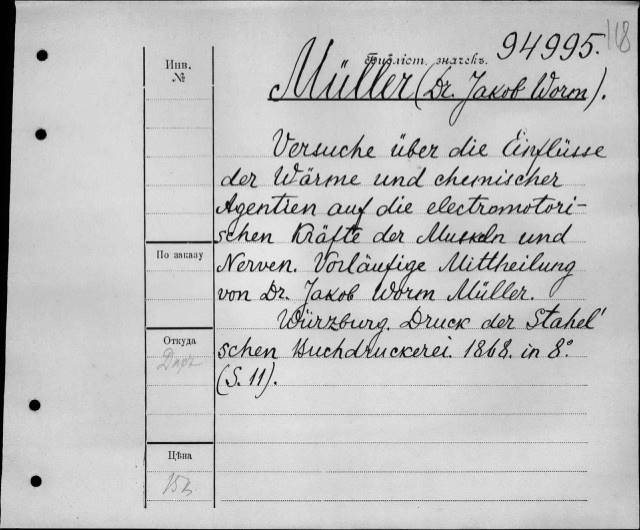 118
94995.
Библіот. значекъ.
Инв.
№
Müller (Dr. Jakob Worm).
Versuche über die Einflüsse
der Wärme und chemischer
Agentien auf die electromotori-
schen Kräfte der Muskeln und
По заказу
Nerven. Vorläufige Mittheilung
von Dr. Jakob Worm Müller.
Würzburg. Druck der Stahel'
Откуда
schen Buchdruckerei. 1868. in 8°.
Даръ
(S. 11).
Цѣна